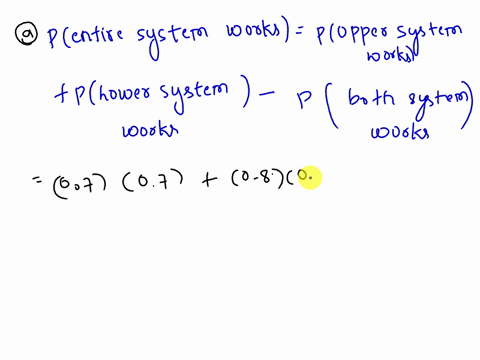 a P(entire system works) = P(Opper system works)
+ P(hower system works) - P(both system works)
= (0.7) (0.7) + (0.8)(0.